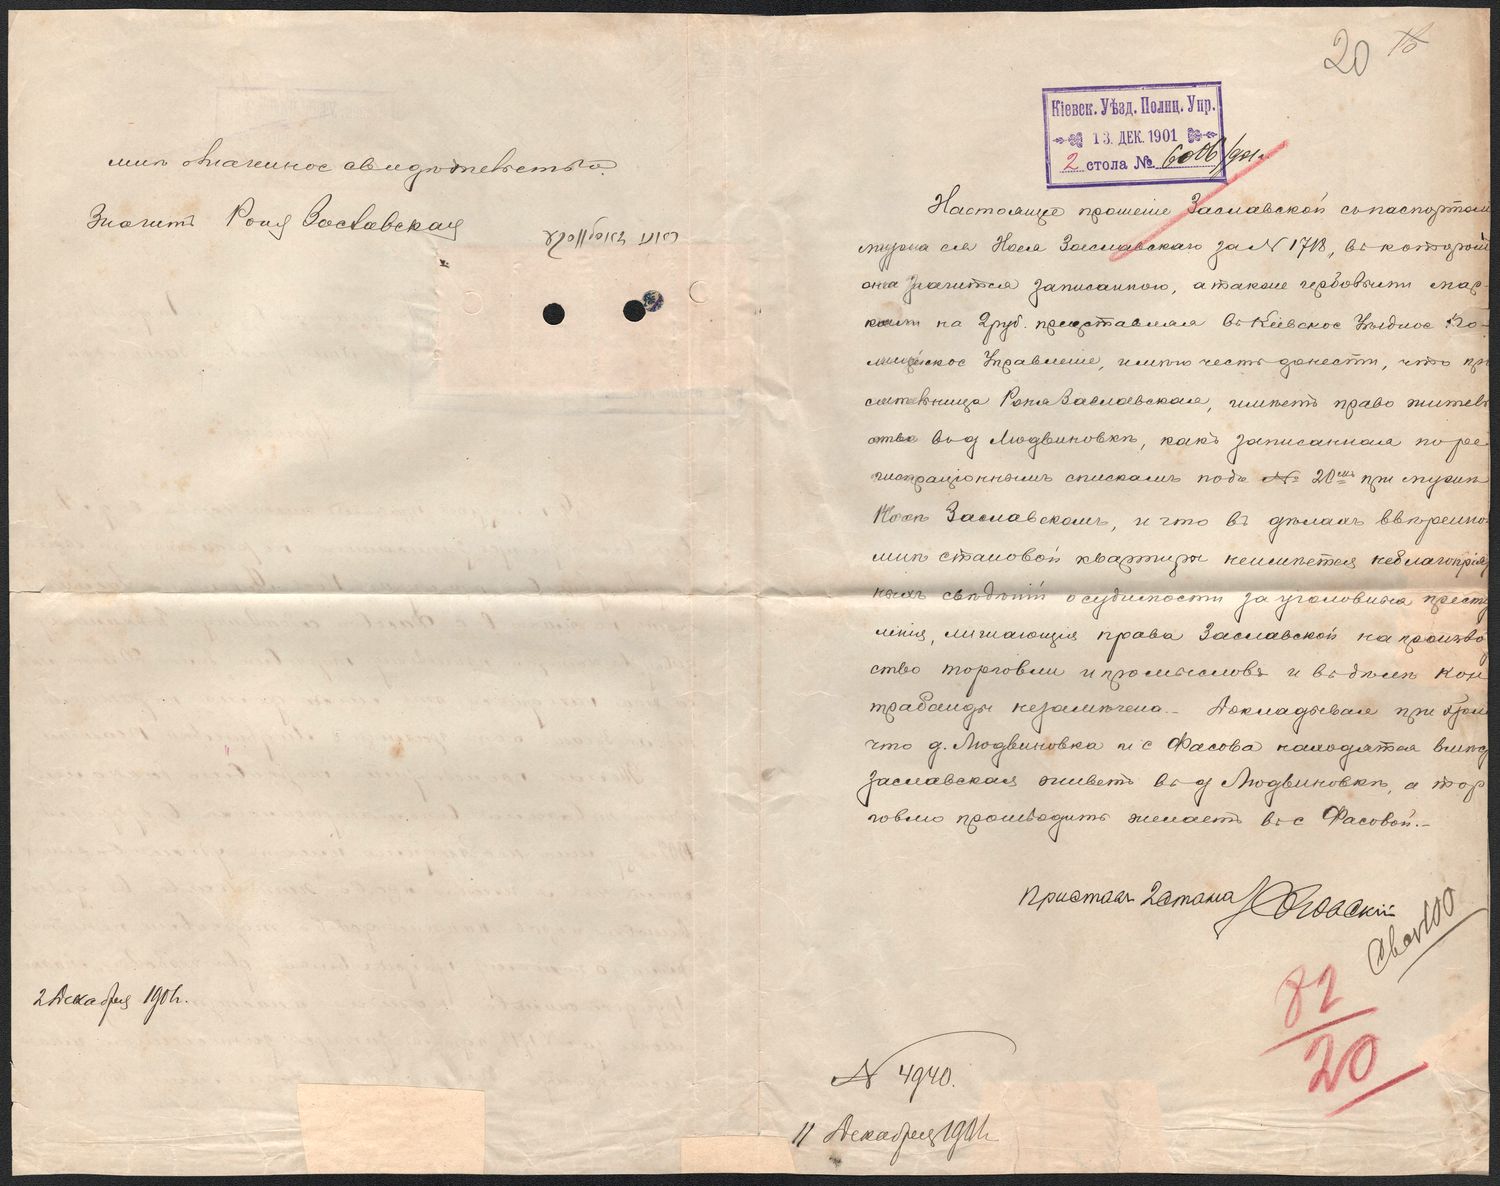 мнѣ означенное свидѣтельство.
Значитъ Роня Заславская
2 Декабря 1901 г.
20
Кіевск. Уѣзд. Полиц. Упр.
13. ДЕК. 1901
2 стола № 6006/901 г.
Настоящее прошеніе Заславской съ паспортомъ
мужа ея Заславскаго за № 1718, въ которомъ
она значится записанною, а также гербовыми мар-
ками на 2 руб. представляя въ Кіевское Уѣздное По-
лицейское Управленіе, имѣю честь донести, что про
сительница Роня Заславская, имѣетъ право житель
ства въ д Людвиновкѣ, какъ записанная по ре
гистраціоннымъ спискамъ подъ № 20мъ при мужѣ
Заславскомъ, и что въ дѣлахъ ввѣренной
мнѣ становой квартиры неимѣется неблагопрія
ныхъ свѣдѣній о судимости за уголовныя престу
ленія, лишающія права Заславской на производ
ство торговли и промысловъ и въ дѣлѣ кон
трабанды незамѣчена.- Докладываю при этомъ
что д. Людвиновка и с Фасова находятся
Заславская живетъ въ д Людвиновкѣ, а тор
говлю производить желаетъ въ с Фасовой.-
Приставъ 2 стана
82
20
№ 4940.
11 Декабря 1901 г.